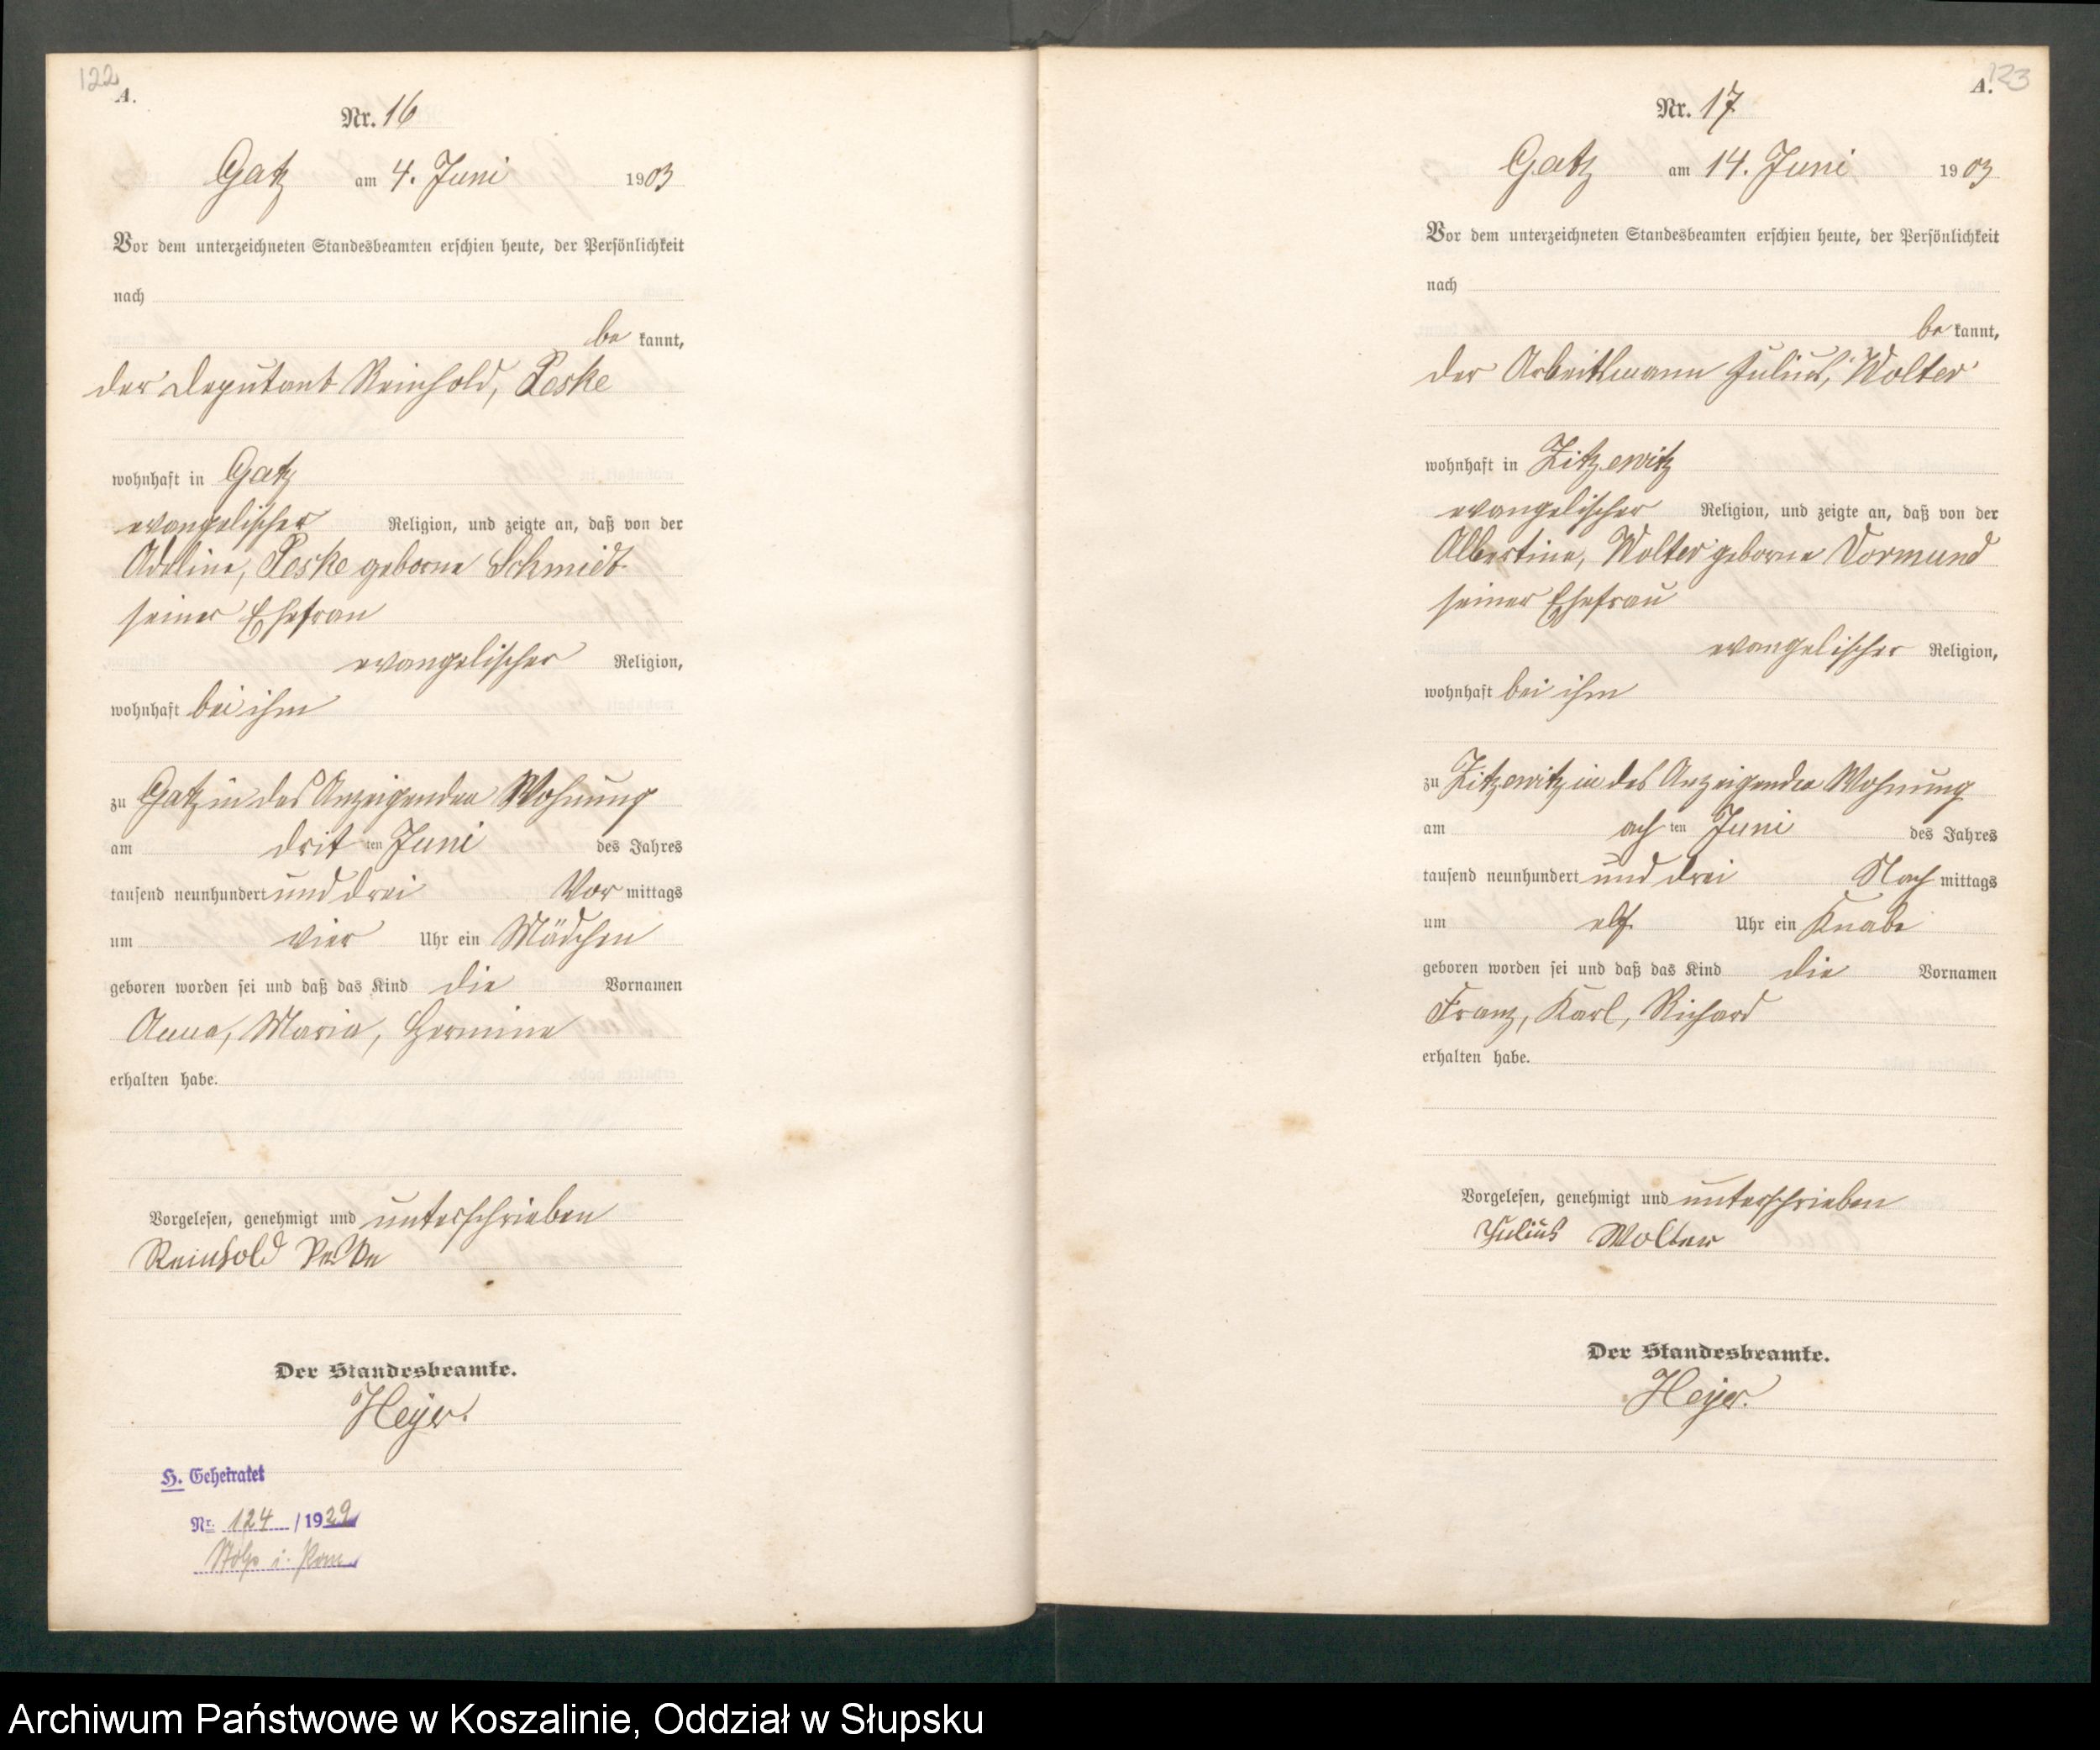 122
A.
Nr. 16
Gatz am 4. Juni 1903
Vor dem unterzeichneten Standesbeamten erschien heute, der Persönlichkeit
nach
be kannt,
der Deputant Reinhold, Peske
wohnhaft in Gatz
evangelischer Religion, und zeigte an, daß von der
Adeline, Peske geborne Schmidt
seiner Ehefrau
evangelischer Religion,
wohnhaft bei ihm
zu Gatz in des Anzeigenden Wohnung
am drit ten Juni des Jahres
tausend neunhundert und drei Vor mittags
um vier Uhr ein Mädchen
geboren worden sei und daß das Kind die Vornamen
Anna, Maria, Hermine
erhalten habe.
Vorgelesen, genehmigt und unterschrieben
Reinhold Peske
Der Standesbeamte.
Heyer.
H. Geheiratet
Nr. 124 /1929
Stolp i. Pom.
123
A.
Nr. 17
Gatz am 14. Juni 1903
Vor dem unterzeichneten Standesbeamten erschien heute, der Persönlichkeit
nach
be kannt,
der Arbeitsmann Julius, Wolter
wohnhaft in Zitzewitz
evangelischer Religion, und zeigte an, daß von der
Albertine, Wolter geborne Vormund
seiner Ehefrau
evangelischer Religion,
wohnhaft bei ihm
zu Zitzewitz in des Anzeigenden Wohnung
am ach ten Juni des Jahres
tausend neunhundert und drei Nach mittags
um elf Uhr ein Knabe
geboren worden sei und daß das Kind die Vornamen
Franz, Karl, Richard
erhalten habe.
Vorgelesen, genehmigt und unterschrieben
Julius Wolter
Der Standesbeamte.
Heyer.
Archiwum Państwowe w Koszalinie, Oddział w Słupsku